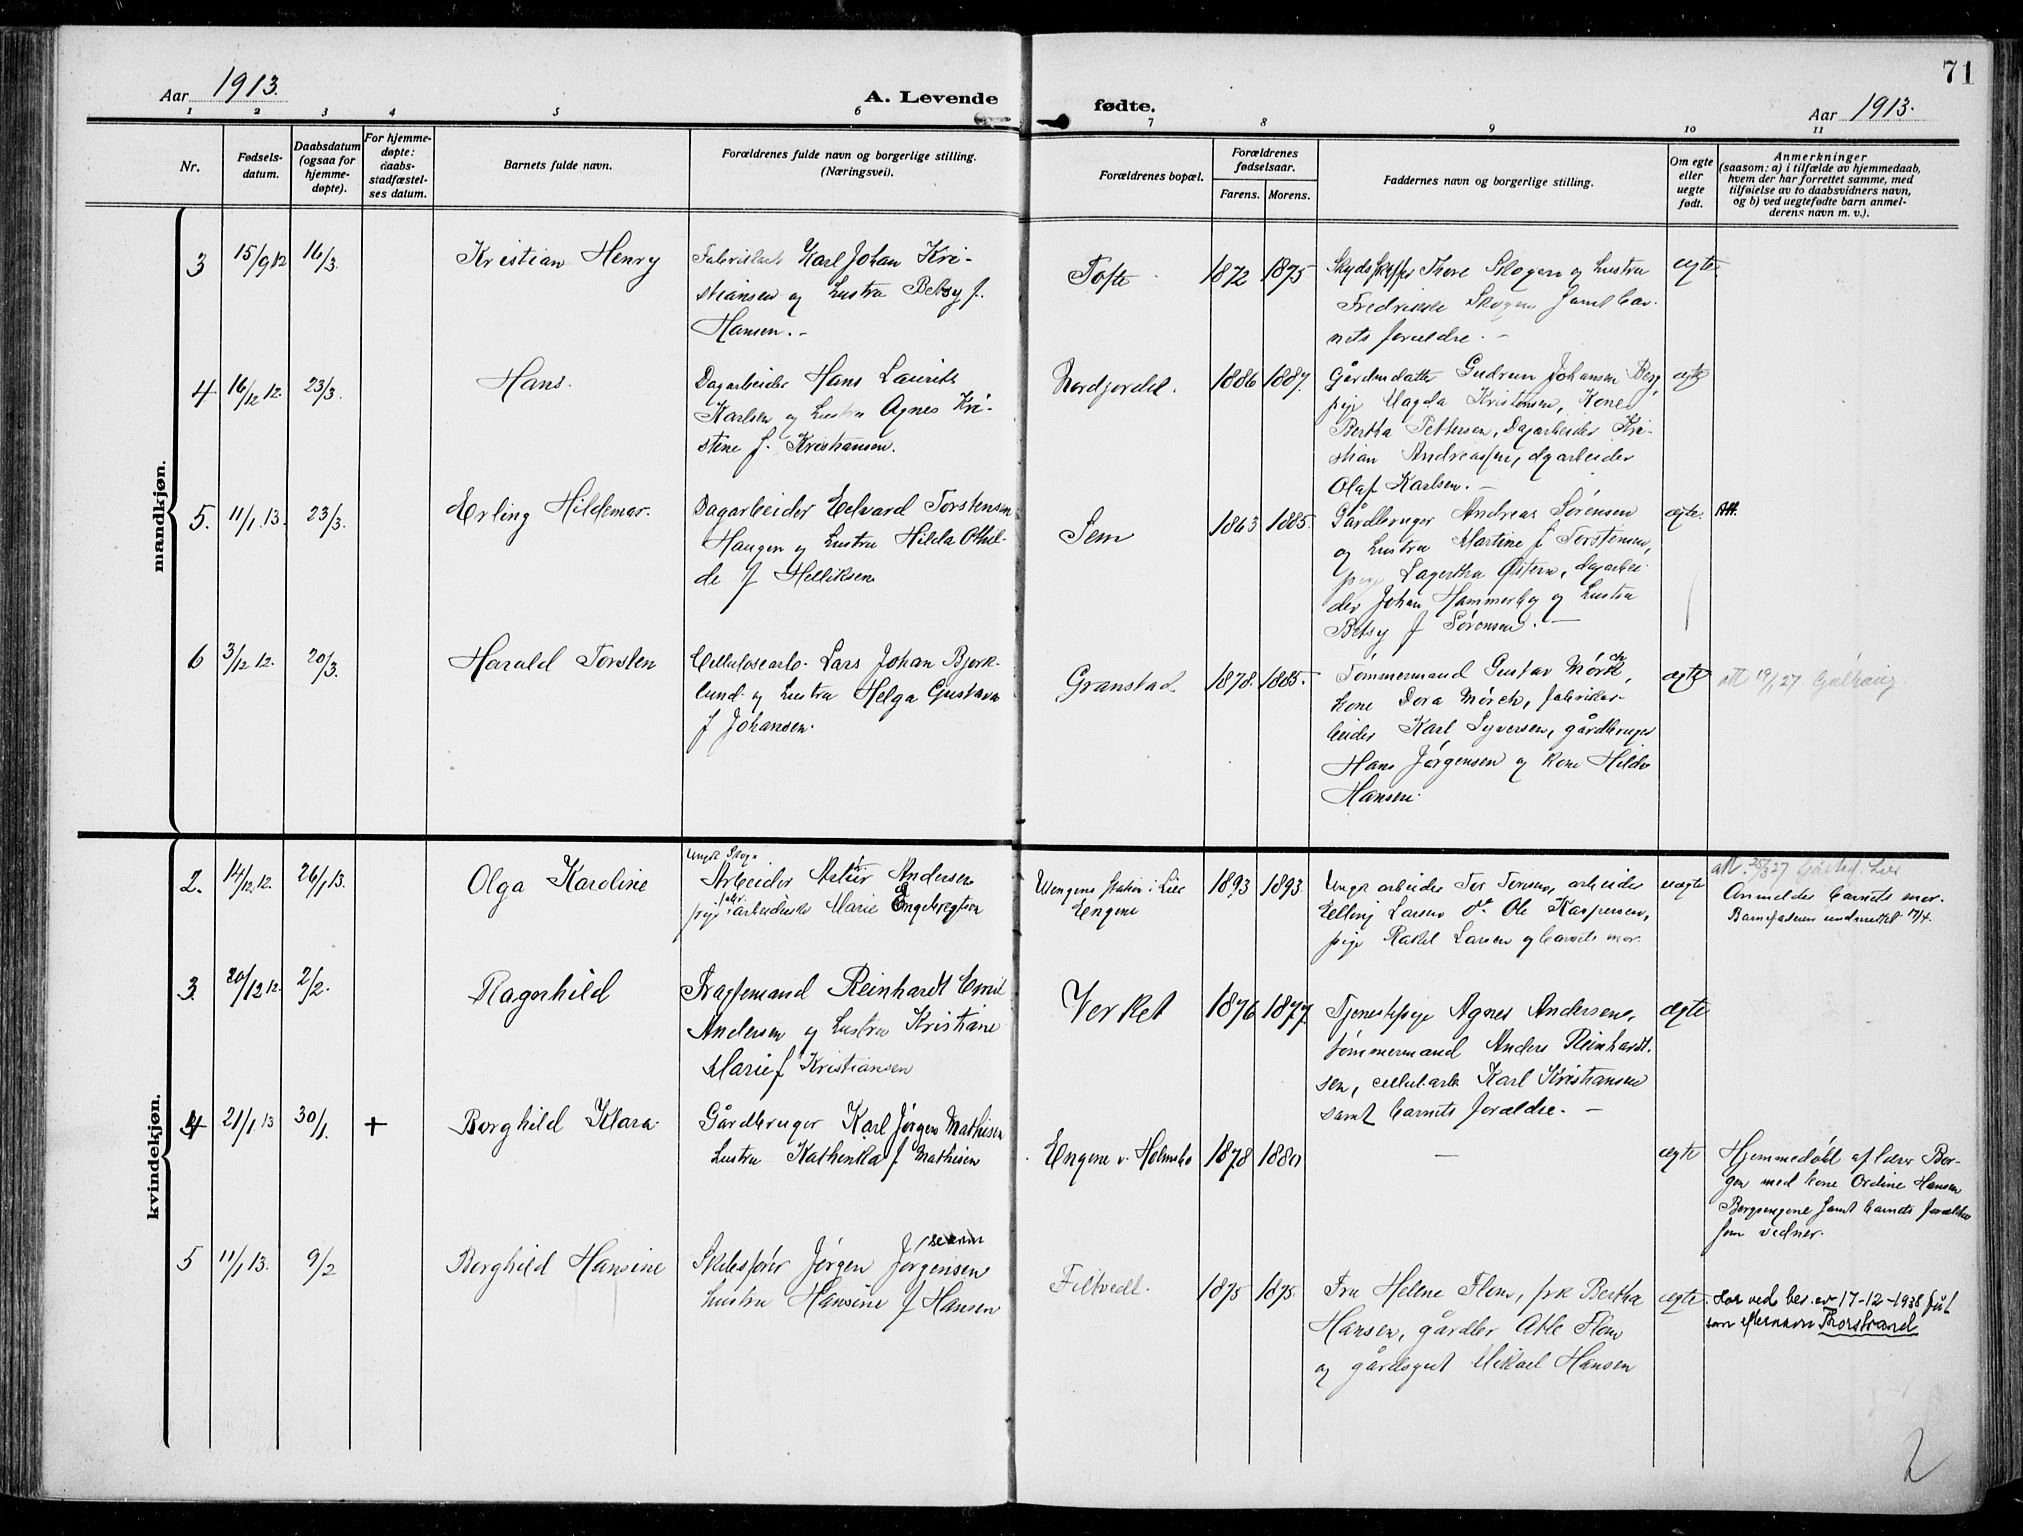 71
Aar 1913.
A. Levende fødte.
Aar 1913.
1 2 3 4 5 6 7 8 9 10 11
Nr.
Fødsels-
datum.
Daabsdatum
(ogsaa for
hjemme-
døpte).
For hjemme-
døpte:
daabs-
stadfæstel-
ses datum.
Barnets fulde navn.
Forældrenes fulde navn og borgerlige stilling.
(Næringsvei).
Forældrenes bopæl.
Forældrenes
fødselsaar.
Farens. Morens.
Faddernes navn og borgerlige stilling.
Om egte
eller
uegte
født.
Anmerkninger
(saasom: a) i tilfælde av hjemmedaab,
hvem der har forrettet samme, med
tilføielse av to daabsvidners navn,
og b) ved uegtefødte barn anmel-
derens navn m. v.).
mandkjøn.
3 15/9 12 16/3. Kristian Henry
Karl Johan Kri-
stiansen og hustru Betsy f.
Hansen.-
Tofte 1872 1875
Thore Skogen og hustru
Fredrikke Skogen samt bar-
nets forældre. -
ægte
4 16/12 12. 23/3. Hans.
Dagarbeider Hans Laurits
Karlsen og hustru Agnes Kri-
stine f. Kristiansen.
Nordjordet. 1886 1887.
Gårdmdatter Gudrun Johansen Berg,
pige Magda Kristensen, Kone
Bertha Pettersen, Dagarbeider Kri-
stian Andreassen, dgarbeider
Olaf Karlsen. -
ægte
5. 11/1.13. 23/3. Erling Hildemar.
Dagarbeider Edvard Torstensen
Haugen og hustru Hilda Othil-
de f Helliksen
Sem 1863 1885.
Gårdbruger Andreas Sørensen
og hustru Martine f Torstensen,
pige Lagertha Østern, dgarbei-
der Johan Hammerbog og hustru
Betsy f Sørensen. -
ægte. Att.
6 3/12 12. 20/3. Harald Torsten
Cellulosearb. Lars Johan Bjørk-
lund og hustru Helga Gustava
f Johansen.
Granstad. 1878. 1885.
Tømmermand Gustav Mørch,
kone Dora Mørch, fabrikar-
beider Karl Syversen, gårdbruger
Hans Jørgensen og kone Hilda
Hansen.
ægte att 19/1 27
kvindekjøn.
2. 14/12.12. 26/1 13. Olga Karoline
Ungk. Skog
Arbeider Artur Andersen
fabr.
pige arbeiderske Marie Engebregtsen
Engene 1893 1893
Ungk arbeider Tor Tormos, arbeider
Elling Larsen do Ole Kaspersen,
pige Rakel Larsen og barnets mor.
uægte
att. 25/3 27
Anmelder barnets mor.
Barnefaderen underrettet 17/4.
3. 20/12 12. 2/2. Ragnhild
Reinhardt Emil
Andersen og hustru Kristiane
Marie f Kristiansen
Verket 1876 1877.
Tjenestepige Agnes Andersen,
tømmermand Anders Reinhardt-
sen, cellularb Karl Kristiansen
samt barnets forældre. -
ægte
4 21/1 13 30/1. + Borghild Klara.
Gårdbruger Karl Jørgen Mathisen
hustru Kathinka f Mathisen
Engene v. Holmsbo 1878 1880
-
ægte
Hjemmedøbt af lærer Ber-
gen med kone Ordine Hansen
Bergsengene samt barnets forældre
som vidner.
5 11/1 13. 9/2 Borghild Hansine
Skibsfører Jørgen Jørgensen
hustru Hansine f Hansen
Filtvedt. 1875 1875
Fru Helene Flom, frk Bertha
Hansen, gårdbr Atle Flom
og gårdsgut Mikael Hansen
ægte.
Har ved bev. av 17-12-1938 fåt
som efternavn Thorstrand
2